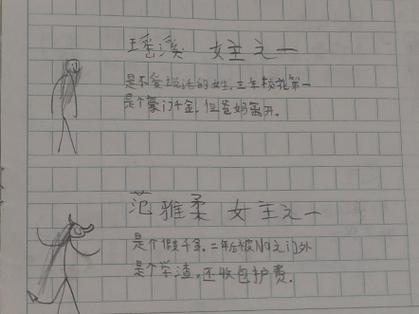 瑶溪 女主之一
是不爱说话的女生,三年校花第一
是个豪门千金,但爸妈离开。
范雅柔 女主之一
是个假千金,二年后被拒之门外
是个学渣,还收包护费。